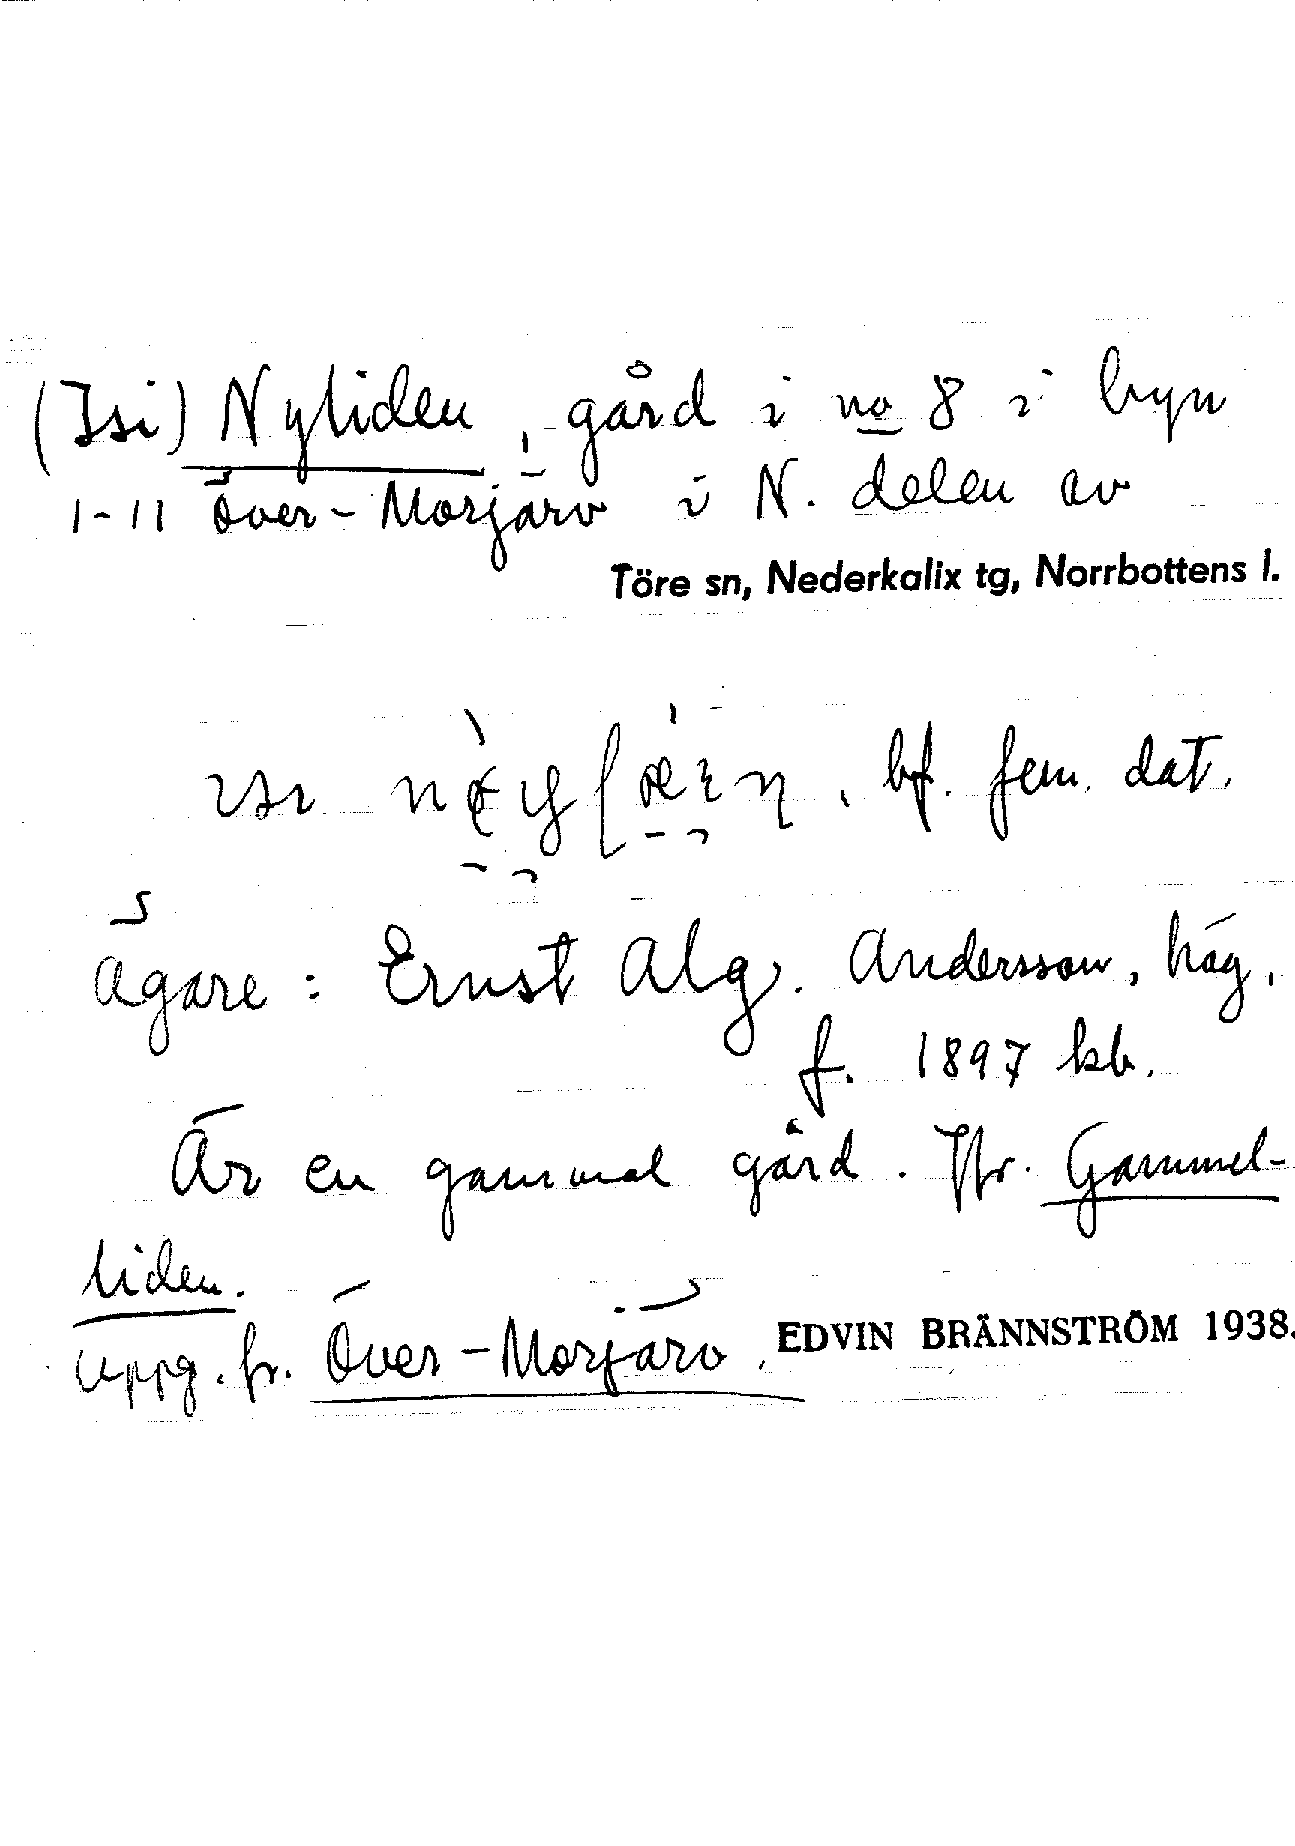 (Isi) Nyliden, gård i no 8 i byn
1-11 Över-Morjärv i N. delen av
Töre sn, Nederkalix tg, Norrbottens l.
bf. fem. dat.
Ägare: Ernst Alg. Andersson, häg.
f. 1897 kb.
Är en gammal gård. Jfr. Gammel-
liden.
Uppg. fr. Över-Morjärv. EDVIN BRÄNNSTRÖM 1938.